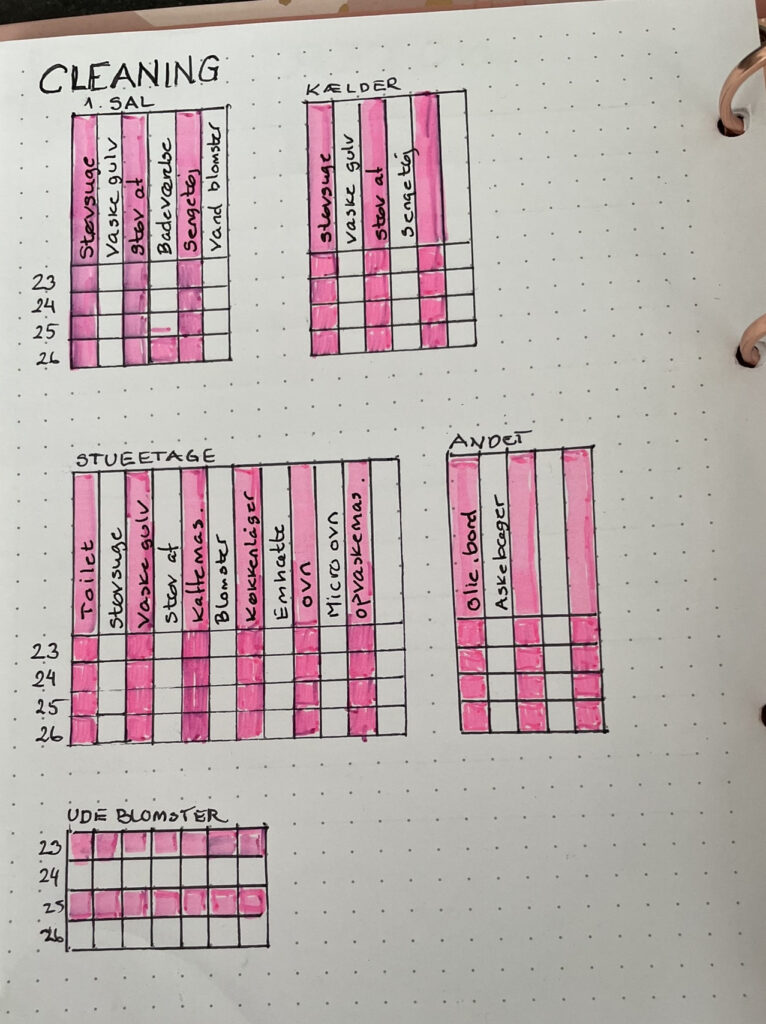 CLEANING
1. SAL
Støvsuge
Vaske gulv
Støv af
Badeværelse
Sengetøj
Vand blomster
23
24
25
26
KÆLDER
Støvsuge
Vaske gulv
Støv af
Sengetøj
STUEETAGE
Toilet
Støvsuge
Vaske gulv
Støv af
Kaffemas.
Blomster
Køkkenlåger
Emhætte
Ovn
Micro ovn
Opvaskemas.
23
24
25
26
ANDET
Olie.bord
Askebæger
UDE BLOMSTER
23
24
25
26